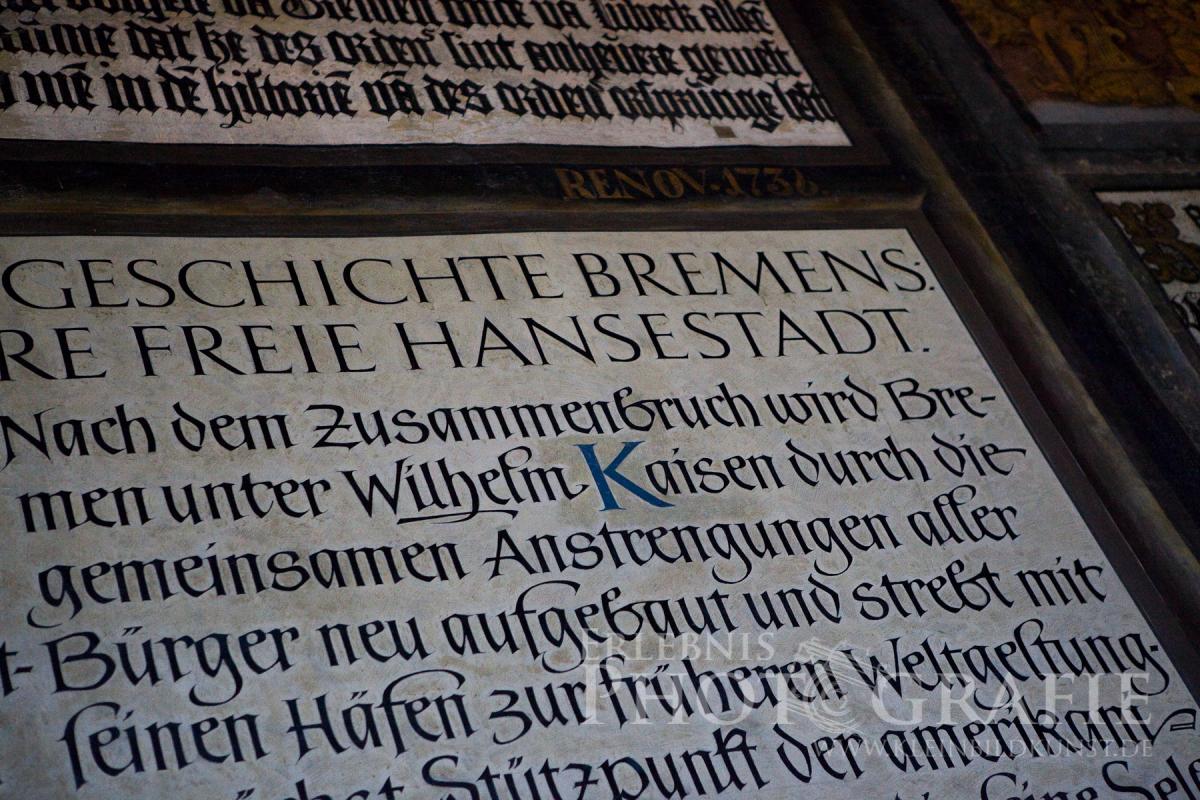 dat he des ordens sint anheuere gewest
in dē historiē vā des orden orsprunge
RENOV. 1736.
GESCHICHTE BREMENS:
RE FREIE HANSESTADT.
Nach dem Zusammenbruch wird Bre-
men unter Wilhelm Kaisen durch die
gemeinsamen Anstrengungen aller
t-Bürger neu aufgebaut und strebt mit
seinen Häfen zur früheren Weltgeltung.
Stützpunkt der amerikani
ERLEBNIS
PHOTOGRAFIE
WWW.KLEINBILDKUNST.DE